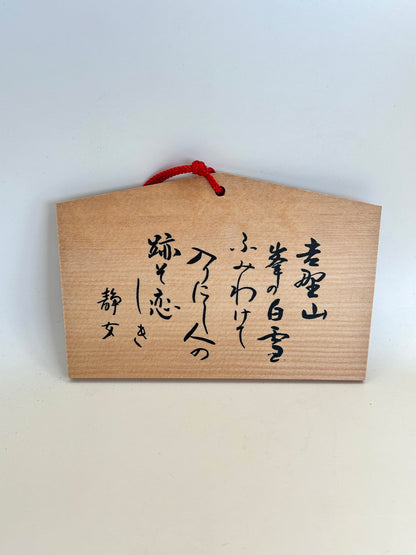 吉野山
峯の白雪
ふみわけて
入りにし人の
跡ぞ恋
しき
静女